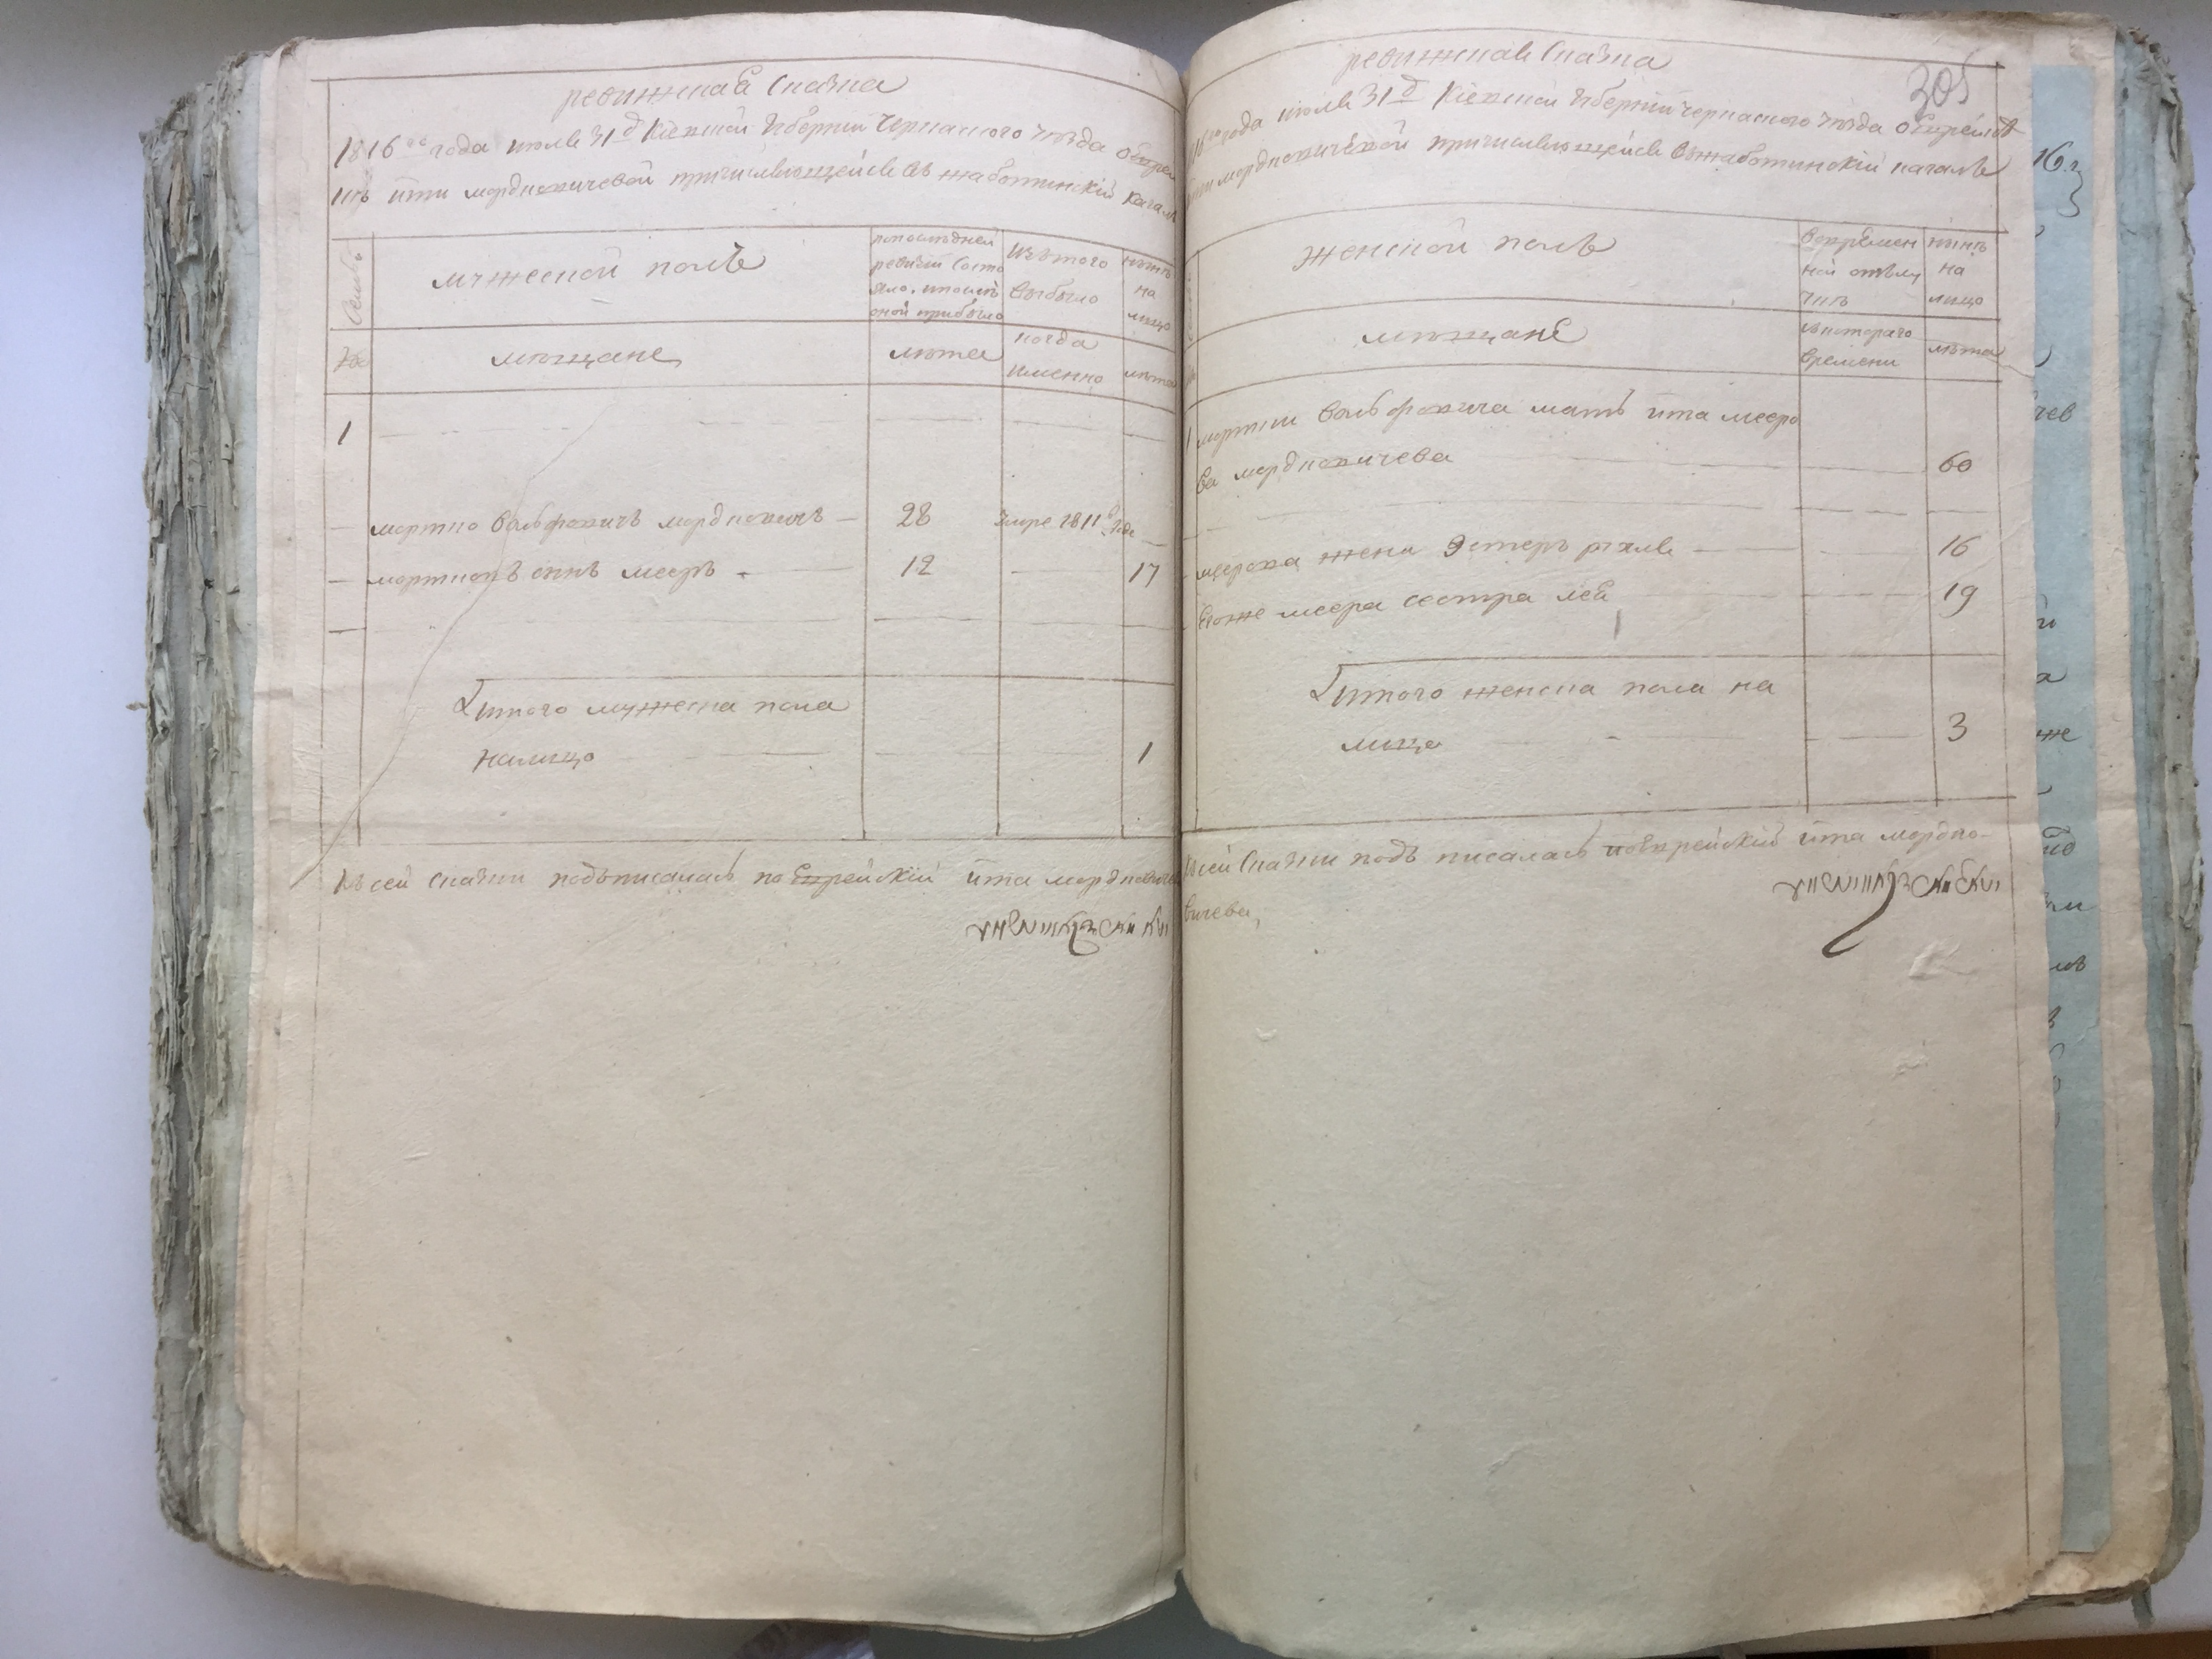 ревижская Сказка
1816го года июля 31д Кiевской Губернiи Черкаского уѣзда о Еврей
кѣ йти мордковичевой причисляющейся въ жаботинскiй кагалъ
Семьи
мужеской полъ
попослѣдней
ревизiи Состо
яло, ипослѣ
оной прибыло
Изътого
выбыло
нынѣ
на
лицо
№
мѣщане
лѣта
когда
именно
лѣта
1
мортко Вольфовичъ мордковичъ 28 умре 1811 года
мортковъ сынъ мееръ 12 17
Итого мужеска пола
налицо 1
Къ сей Сказки подъписалась по Еврейскiй йта мордковиче
ревижская Сказка
305
16го года июля 31д Кiевской Губернiи Черкаского уѣзда о Еврейкѣ
йти мордковичевой причисляющейся въ жаботинскiй кагалъ
женской полъ
Вовремен
ной отълу
чкѣ
нынѣ
на
лицо
мѣщане
скотораго
времени
лѣта
1 мортки Вольфовича мать йта мееро
ва мордковичева 60
меерова жена Эстеръ рухля 16
Егоже меера сестра лея 19
Итого женска пола на
лицо 3
Ксей Сказки подъ писалась поеврейскiй йта мордко-
вичева,
16